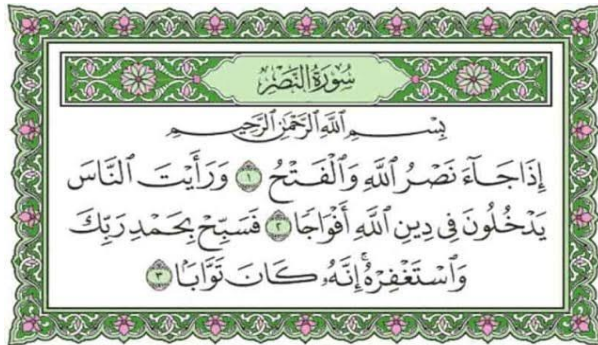 سُورَةُ النَّصْرِ
بِسْمِ اللَّهِ الرَّحْمَٰنِ الرَّحِيمِ
إِذَا جَآءَ نَصْرُ اللَّهِ وَالْفَتْحُ ١ وَرَأَيْتَ النَّاسَ
يَدْخُلُونَ فِي دِينِ اللَّهِ أَفْوَاجًا ٢ فَسَبِّحْ بِحَمْدِ رَبِّكَ
وَاسْتَغْفِرْهُ ۚ إِنَّهُۥ كَانَ تَوَّابًۢا ٣